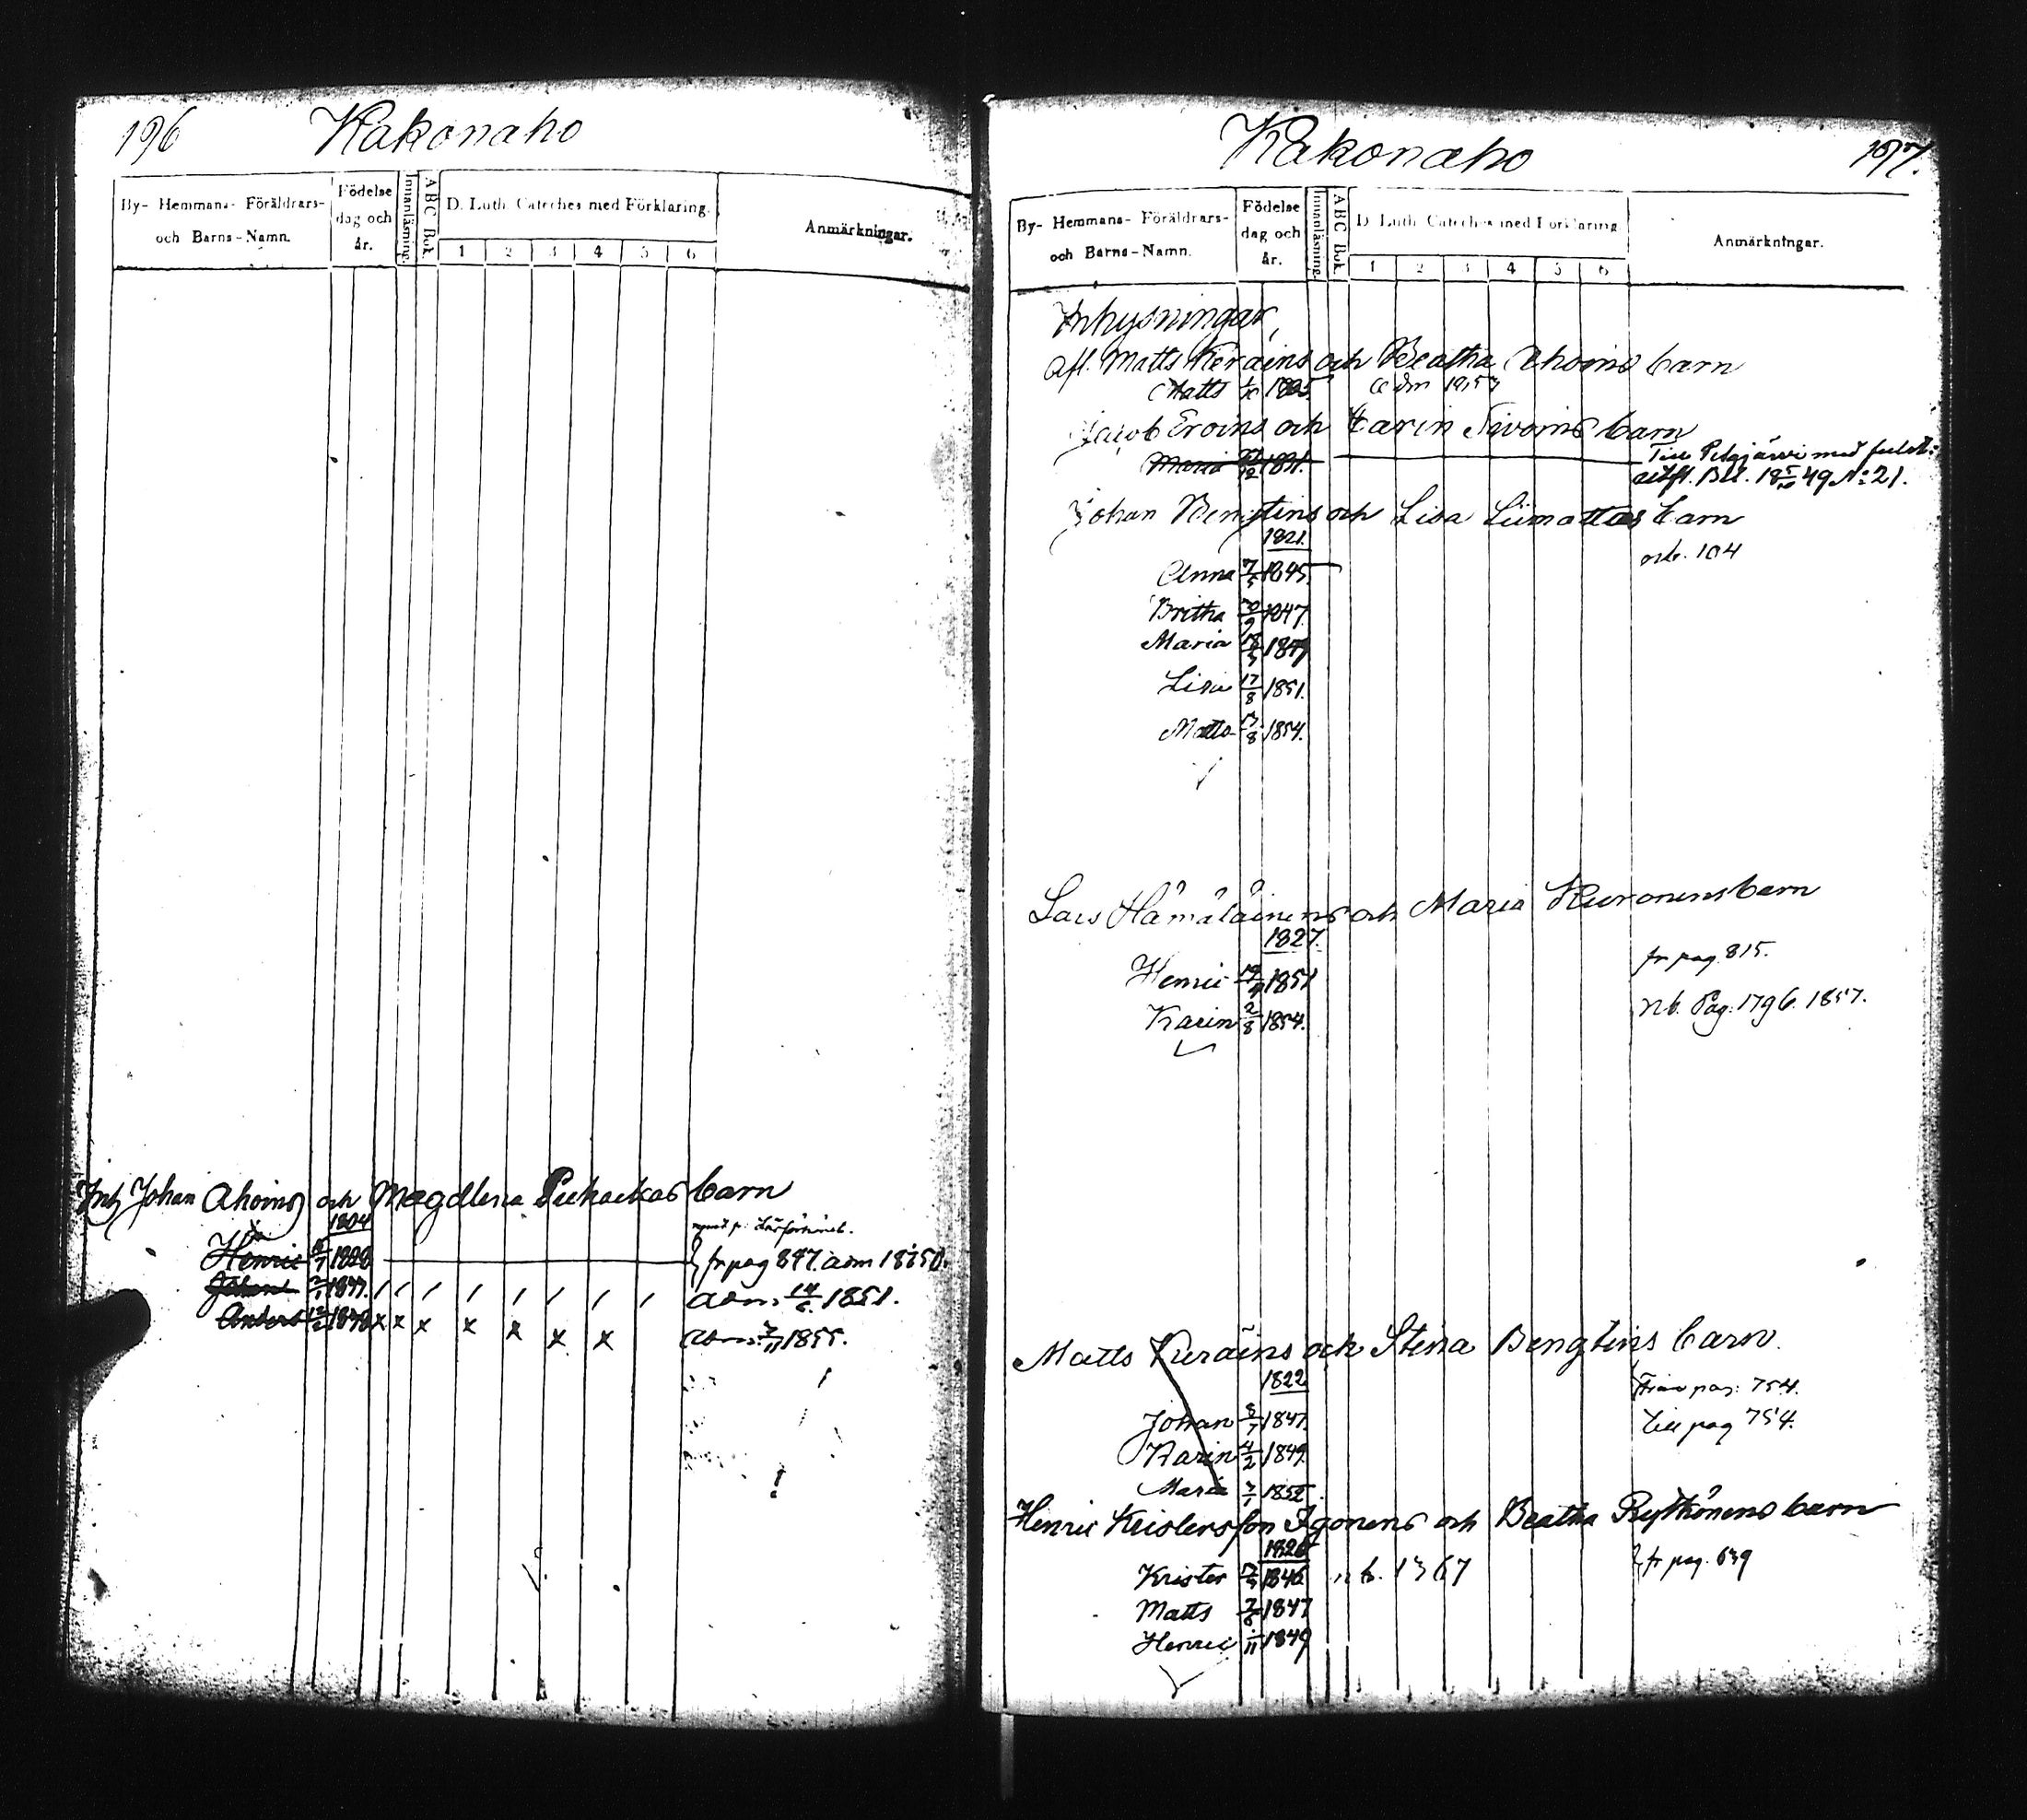 196 Kakonaho
By- Hemmans- Föräldrars- och Barns-Namn.
Födelse dag och år.
Innanläsning.
ABC Bok.
D. Luth. Cateches med Förklaring.
1 2 3 4 5 6
Anmärkningar.
Inh Johan Ahoins och Magdlena Puhackas barn
1804
Henric 1828 fr pag 847. adm 1850.
Johan 1844. adm 1851.
Anders 1838 adm 1855.
Kakonaho 197.
By- Hemmans- Föräldrars- och Barns-Namn.
Födelse dag och år.
Innanläsning.
ABC Bok.
D. Luth. Cateches med Förklaring
1 2 3 4 5 6
Anmärkningar.
Inhysningar,
Afl. Matts Keräins och Beatha Ahoins barn
Matts adm 1853
Jacob Eroins och Carin Sivoins barn
Maria 1831. Till Pelgjärvi med
Bet. 49 No 21.
Johan Bengtins och Lisa Liimattas barn
1821.
104
Anna 7/5 1845.
Britha 1847.
Maria 1849
Lisa 17/8 1851.
Matts 1854.
Lars Hämäläinens och Maria Kuronens barn
1827.
fr pag. 815.
Henric 1851
nb. Pag. 1796. 1857.
Karin 2/8 1854.
Matts Keräins och Stina Bengtins barn.
1822
Från pag: 754.
Johan 8/7 1847.
till pag 754.
Karin 4/2 1849.
Maria 1852.
Henric Kristersson Igonens och Beatha Rytkönens barn
1826
fr pag. 639
Krister 1846 nb. 1367
Matts 7/6 1847
Henric 1849